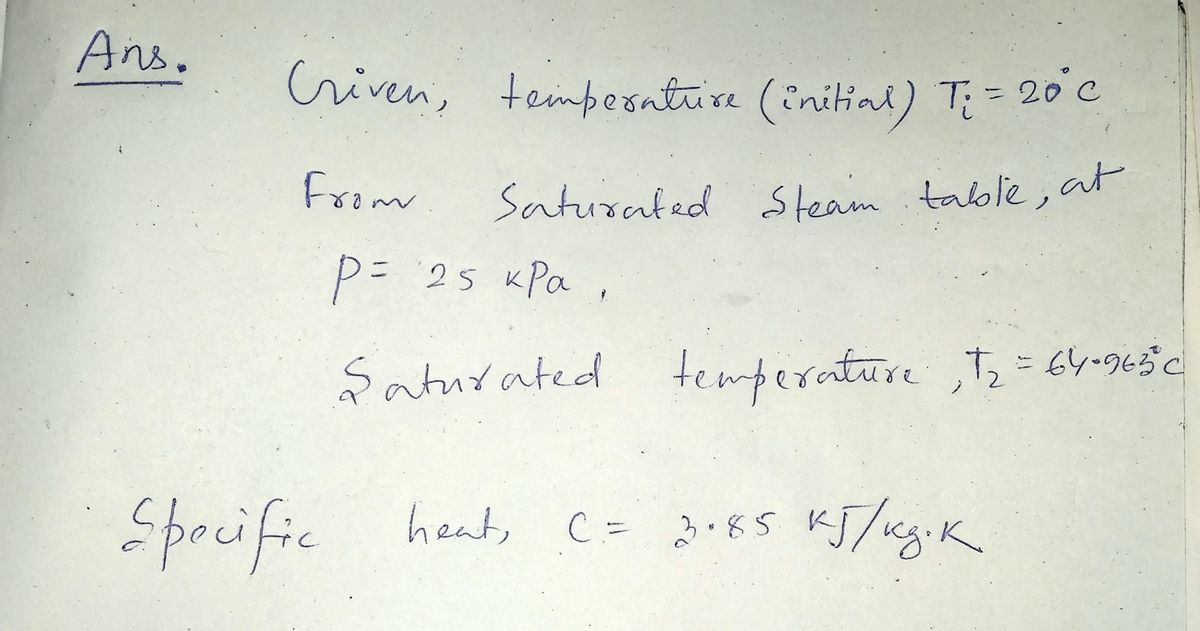 Ans.
Given, temperature (initial) Ti = 20°C
From Saturated Steam table, at
P = 25 kPa,
Saturated temperature, T2 = 64.963°C
Specific heat, C = 3.85 KJ/kg.K